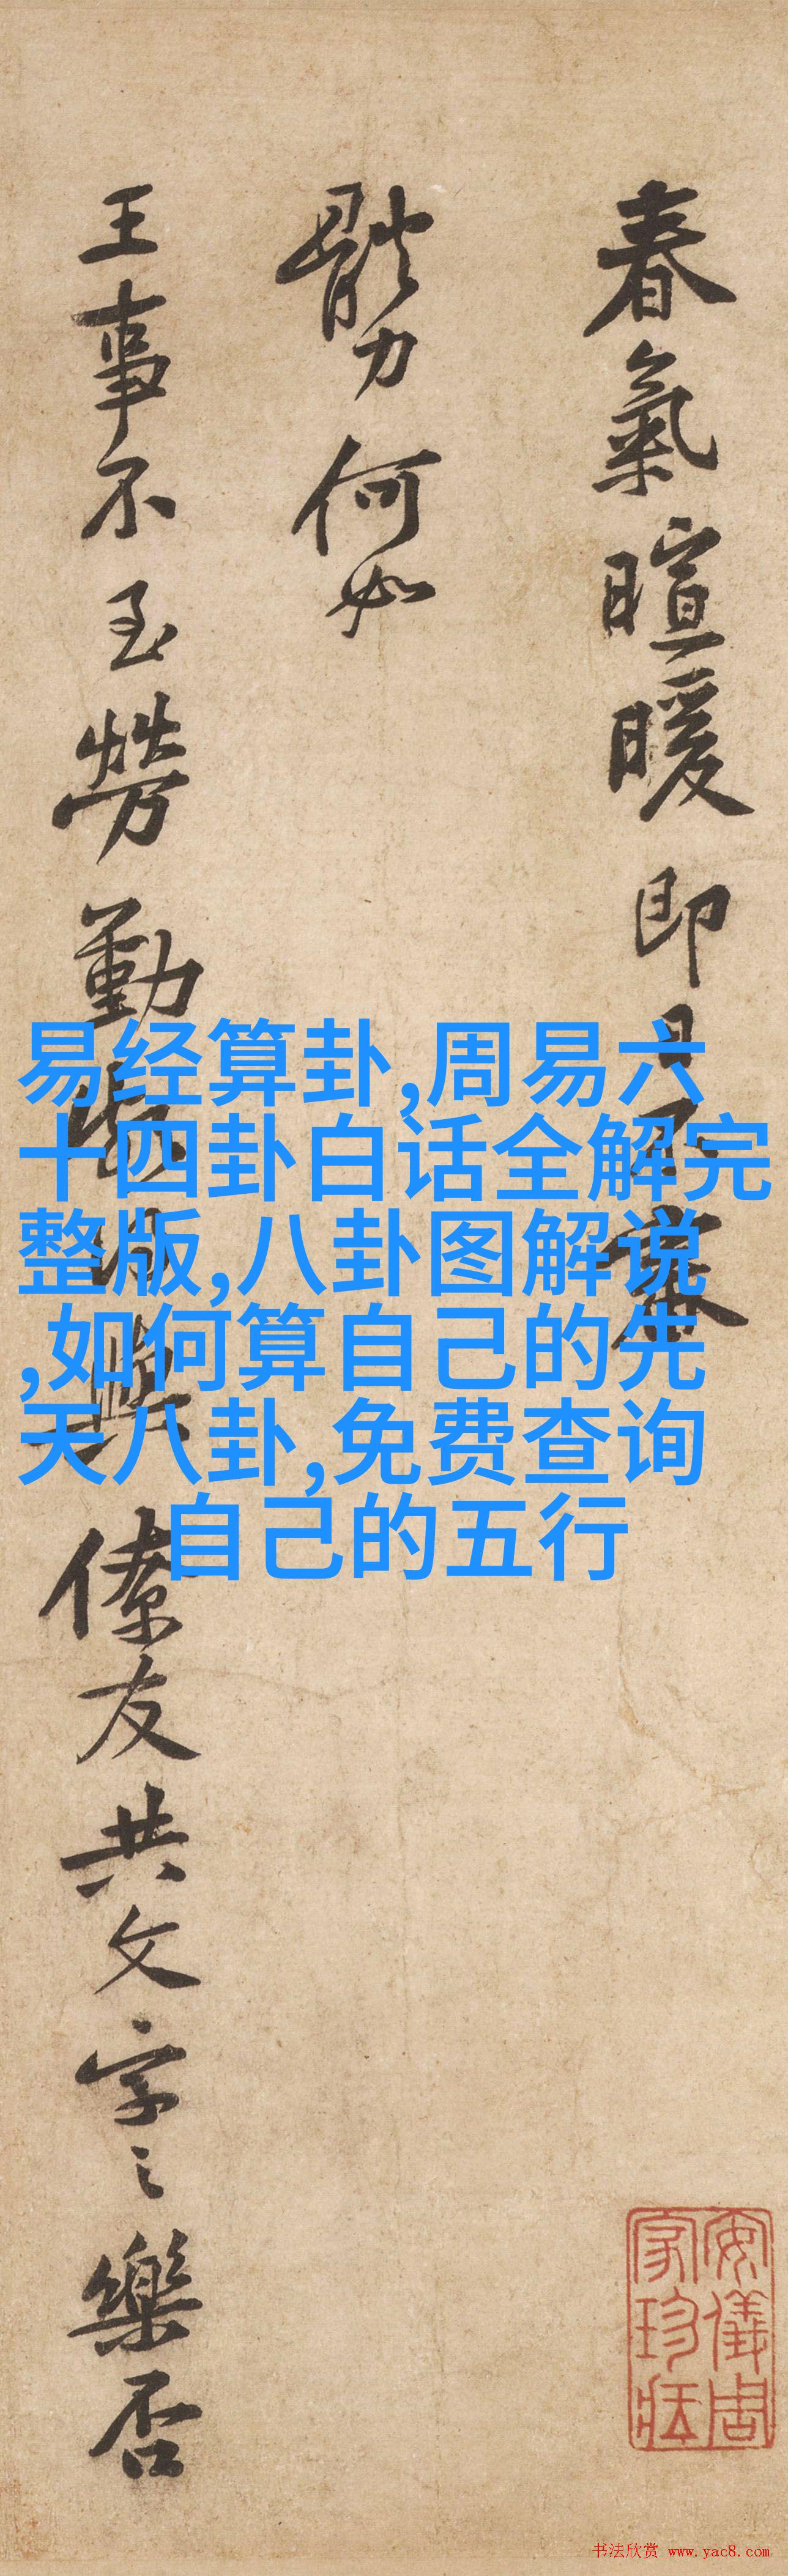 春氣暄暖即日不審
體力何如
王事不至勞勤
僚友共文字之樂否
易经算卦,周易六
十四卦白话全解完
整版,八卦图解说
,如何算自己的先
天八卦,免费查询
自己的五行
安儀周
家珍藏
书法欣赏 www.yac8.com